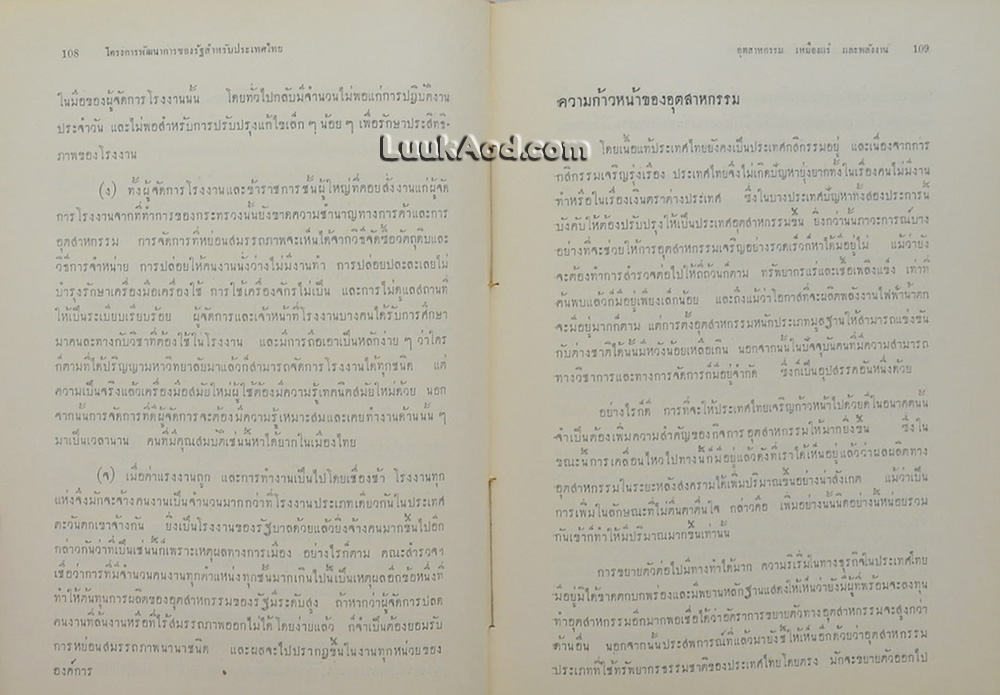 108 โครงการพัฒนาการของรัฐสำหรับประเทศไทย
ในมือของผู้จัดการโรงงานนั้น โดยทั่วไปกลับมีจำนวนไม่พอแก่การปฏิบัติงาน
ประจำวัน และไม่พอสำหรับการปรับปรุงแก้ไขเล็ก ๆ น้อย ๆ เพื่อรักษาประสิทธิ-
ภาพของโรงงาน
(ง) ทั้งผู้จัดการโรงงานและข้าราชการชั้นผู้ใหญ่ที่คอยสั่งงานแก่ผู้จัด
การโรงงานจากที่ทำการของกระทรวงนั้นยังขาดความชำนาญทางการค้าและการ
อุตสาหกรรม การจัดการที่หย่อนสมรรถภาพจะเห็นได้จากวิธีจัดซื้อวัตถุดิบและ
วิธีการจำหน่าย การปล่อยให้คนงานนั่งว่างไม่มีงานทำ การปล่อยปละละเลยไม่
บำรุงรักษาเครื่องมือเครื่องใช้ การใช้เครื่องจักรไม่เป็น และการไม่ดูแลสถานที่
ให้เป็นระเบียบเรียบร้อย ผู้จัดการและเจ้าหน้าที่โรงงานบางคนได้รับการศึกษา
มาคนละทางกับวิชาที่ต้องใช้ในโรงงาน และมีการถือเอาเป็นหลักง่าย ๆ ว่าใคร
ก็ตามที่ได้ปริญญามหาวิทยาลัยมาแล้วก็สามารถจัดการโรงงานได้ทุกชนิด แต่
ความเป็นจริงแล้วเครื่องมือสมัยใหม่ผู้ใช้ต้องมีความรู้เทคนิคสมัยใหม่ด้วย นอก
จากนั้นการจัดการที่ดีผู้จัดการจะต้องมีความรู้เหมาะสมและเคยทำงานด้านนั้น ๆ
มาเป็นเวลานาน คนที่มีคุณสมบัติเช่นนั้นหาได้ยากในเมืองไทย
(จ) เมื่อค่าแรงงานถูก และการทำงานเป็นไปโดยเชื่องช้า โรงงานทุก
แห่งจึงมักจะจ้างคนงานเป็นจำนวนมากกว่าที่โรงงานประเภทเดียวกันในประเทศ
ตะวันตกเขาจ้างกัน ยิ่งเป็นโรงงานของรัฐบาลด้วยแล้วยิ่งจ้างคนมากขึ้นไปอีก
กล่าวกันว่าที่เป็นเช่นนี้ก็เพราะเหตุผลทางการเมือง อย่างไรก็ตาม คณะสำรวจฯ
เชื่อว่าการที่มีจำนวนคนงานทุกตำแหน่งทุกชั้นมากเกินไปนี้เป็นเหตุผลอีกข้อหนึ่งที่
ทำให้ต้นทุนการผลิตของอุตสาหกรรมของรัฐมีระดับสูง ถ้าหากว่าผู้จัดการปลด
คนงานที่ล้นงานหรือที่ไร้สมรรถภาพออกไม่ได้โดยง่ายแล้ว ก็จำเป็นต้องยอมรับ
การหย่อนสมรรถภาพนานาชนิด และผลจะไปปรากฏขึ้นในงานทุกหน่วยของ
องค์การ
อุตสาหกรรม เหมืองแร่ และพลังงาน 109
ความก้าวหน้าของอุตสาหกรรม
โดยเนื้อแท้ประเทศไทยยังคงเป็นประเทศกสิกรรมอยู่ และเนื่องจากการ
กสิกรรมเจริญรุ่งเรือง ประเทศไทยจึงไม่เกิดปัญหายุ่งยากทั้งในเรื่องคนไม่มีงาน
ทำหรือในเรื่องเงินตราต่างประเทศ ซึ่งในบางประเทศปัญหาทั้งสองประการนี้
บังคับให้ต้องปรับปรุงให้เป็นประเทศอุตสาหกรรมขึ้น ยิ่งกว่านั้นภาวะการณ์บาง
อย่างที่จะช่วยให้การอุตสาหกรรมเจริญอย่างรวดเร็วก็หาได้มีอยู่ไม่ แม้ว่ายัง
จะต้องทำการสำรวจต่อไปให้ถี่ถ้วนก็ตาม ทรัพยากรแร่และเชื้อเพลิงแข็ง เท่าที่
ค้นพบแล้วก็มีอยู่เพียงเล็กน้อย และถึงแม้ว่าโอกาสที่จะผลิตพลังงานไฟฟ้าน้ำตก
จะมีอยู่มากก็ตาม แต่การตั้งอุตสาหกรรมหนักประเภทมูลฐานให้สามารถแข่งขัน
กับต่างชาติได้นั้นมีหวังน้อยเหลือเกิน นอกจากนั้นในปัจจุบันคนที่มีความสามารถ
ทางวิชาการและทางการจัดการก็มีอยู่จำกัด ซึ่งก็เป็นอุปสรรคอันหนึ่งด้วย
อย่างไรก็ดี การที่จะให้ประเทศไทยเจริญก้าวหน้าไปด้วยดีในอนาคตนั้น
จำเป็นต้องเพิ่มความสำคัญของกิจการอุตสาหกรรมให้มากยิ่งขึ้น ซึ่งใน
ขณะนี้การเคลื่อนไหวไปทางนี้ก็มีอยู่แล้วดังที่เราได้เห็นอยู่แล้วว่าผลผลิตทาง
อุตสาหกรรมในระยะหลังสงครามได้เพิ่มปริมาณขึ้นอย่างน่าสังเกต แม้ว่าเป็น
การเพิ่มในลักษณะที่ไม่ตื่นตาตื่นใจ กล่าวคือ เพิ่มอย่างนั้นนิดอย่างนี้หน่อยรวม
กันเข้าก็ทำให้มีปริมาณมากขึ้นเท่านั้น
การขยายตัวต่อไปมีทางทำได้มาก ความริเริ่มในทางธุรกิจในประเทศไทย
มีอยู่มิได้ขาดตกบกพร่องและมีพยานหลักฐานแสดงให้เห็นว่ายังมีผู้ที่พร้อมจะลงทุน
ทำอุตสาหกรรมอีกมากพอเชื่อได้ว่าอัตราการขยายตัวทางอุตสาหกรรมจะสูงกว่า
ด้านอื่น นอกจากนั้นประสพการณ์ที่แล้วมายังชี้ให้เห็นอีกด้วยว่าอุตสาหกรรม
ประเภทที่ใช้ทรัพยากรธรรมชาติของประเทศไทยโดยตรง มักจะขยายตัวออกไป
LuukAod.com